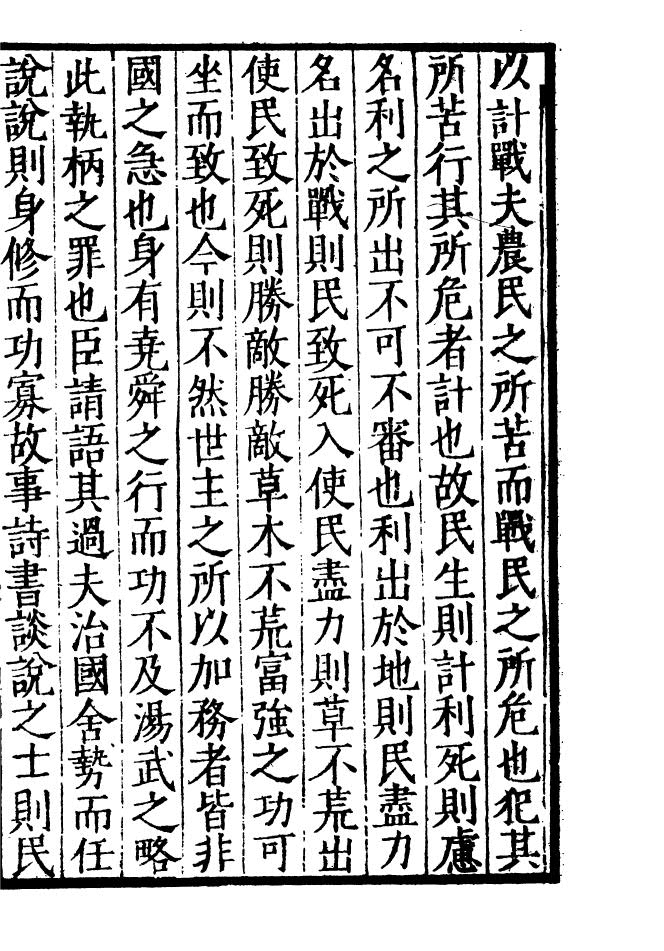 以計戰夫農民之所苦而戰民之所危也犯其
所苦行其所危者計也故民生則計利死則慮
名利之所出不可不審也利出於地則民盡力
名出於戰則民致死入使民盡力則草不荒出
使民致死則勝敵勝敵草木不荒富強之功可
坐而致也今則不然世主之所以加務者皆非
國之急也身有堯舜之行而功不及湯武之略
此執柄之罪也臣請語其過夫治國舍勢而任
說說則身修而功寡故事詩書談說之士則民